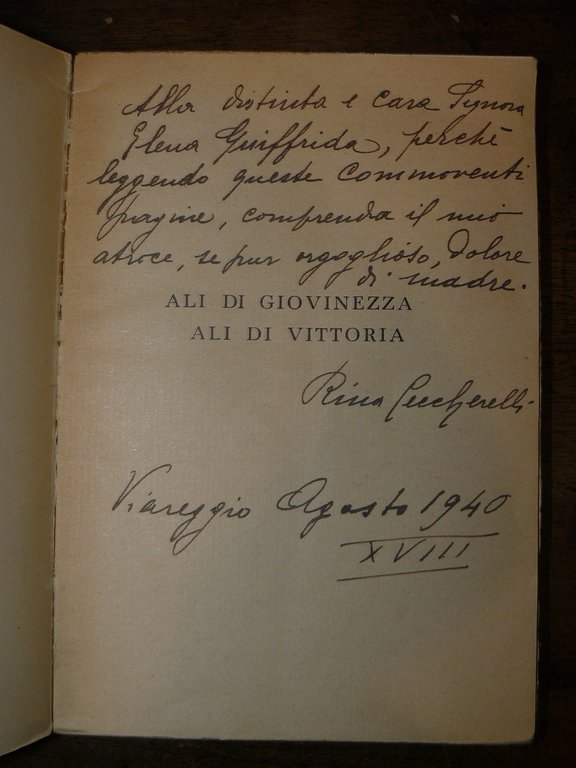 Alla distinta e cara Signora
Elena Guiffrida, perchè
leggendo queste commoventi
pagine, comprenda il mio
atroce, se pur orgoglioso, dolore
di madre.
ALI DI GIOVINEZZA
ALI DI VITTORIA
Rina Ceccherelli
Viareggio Agosto 1940
XVIII